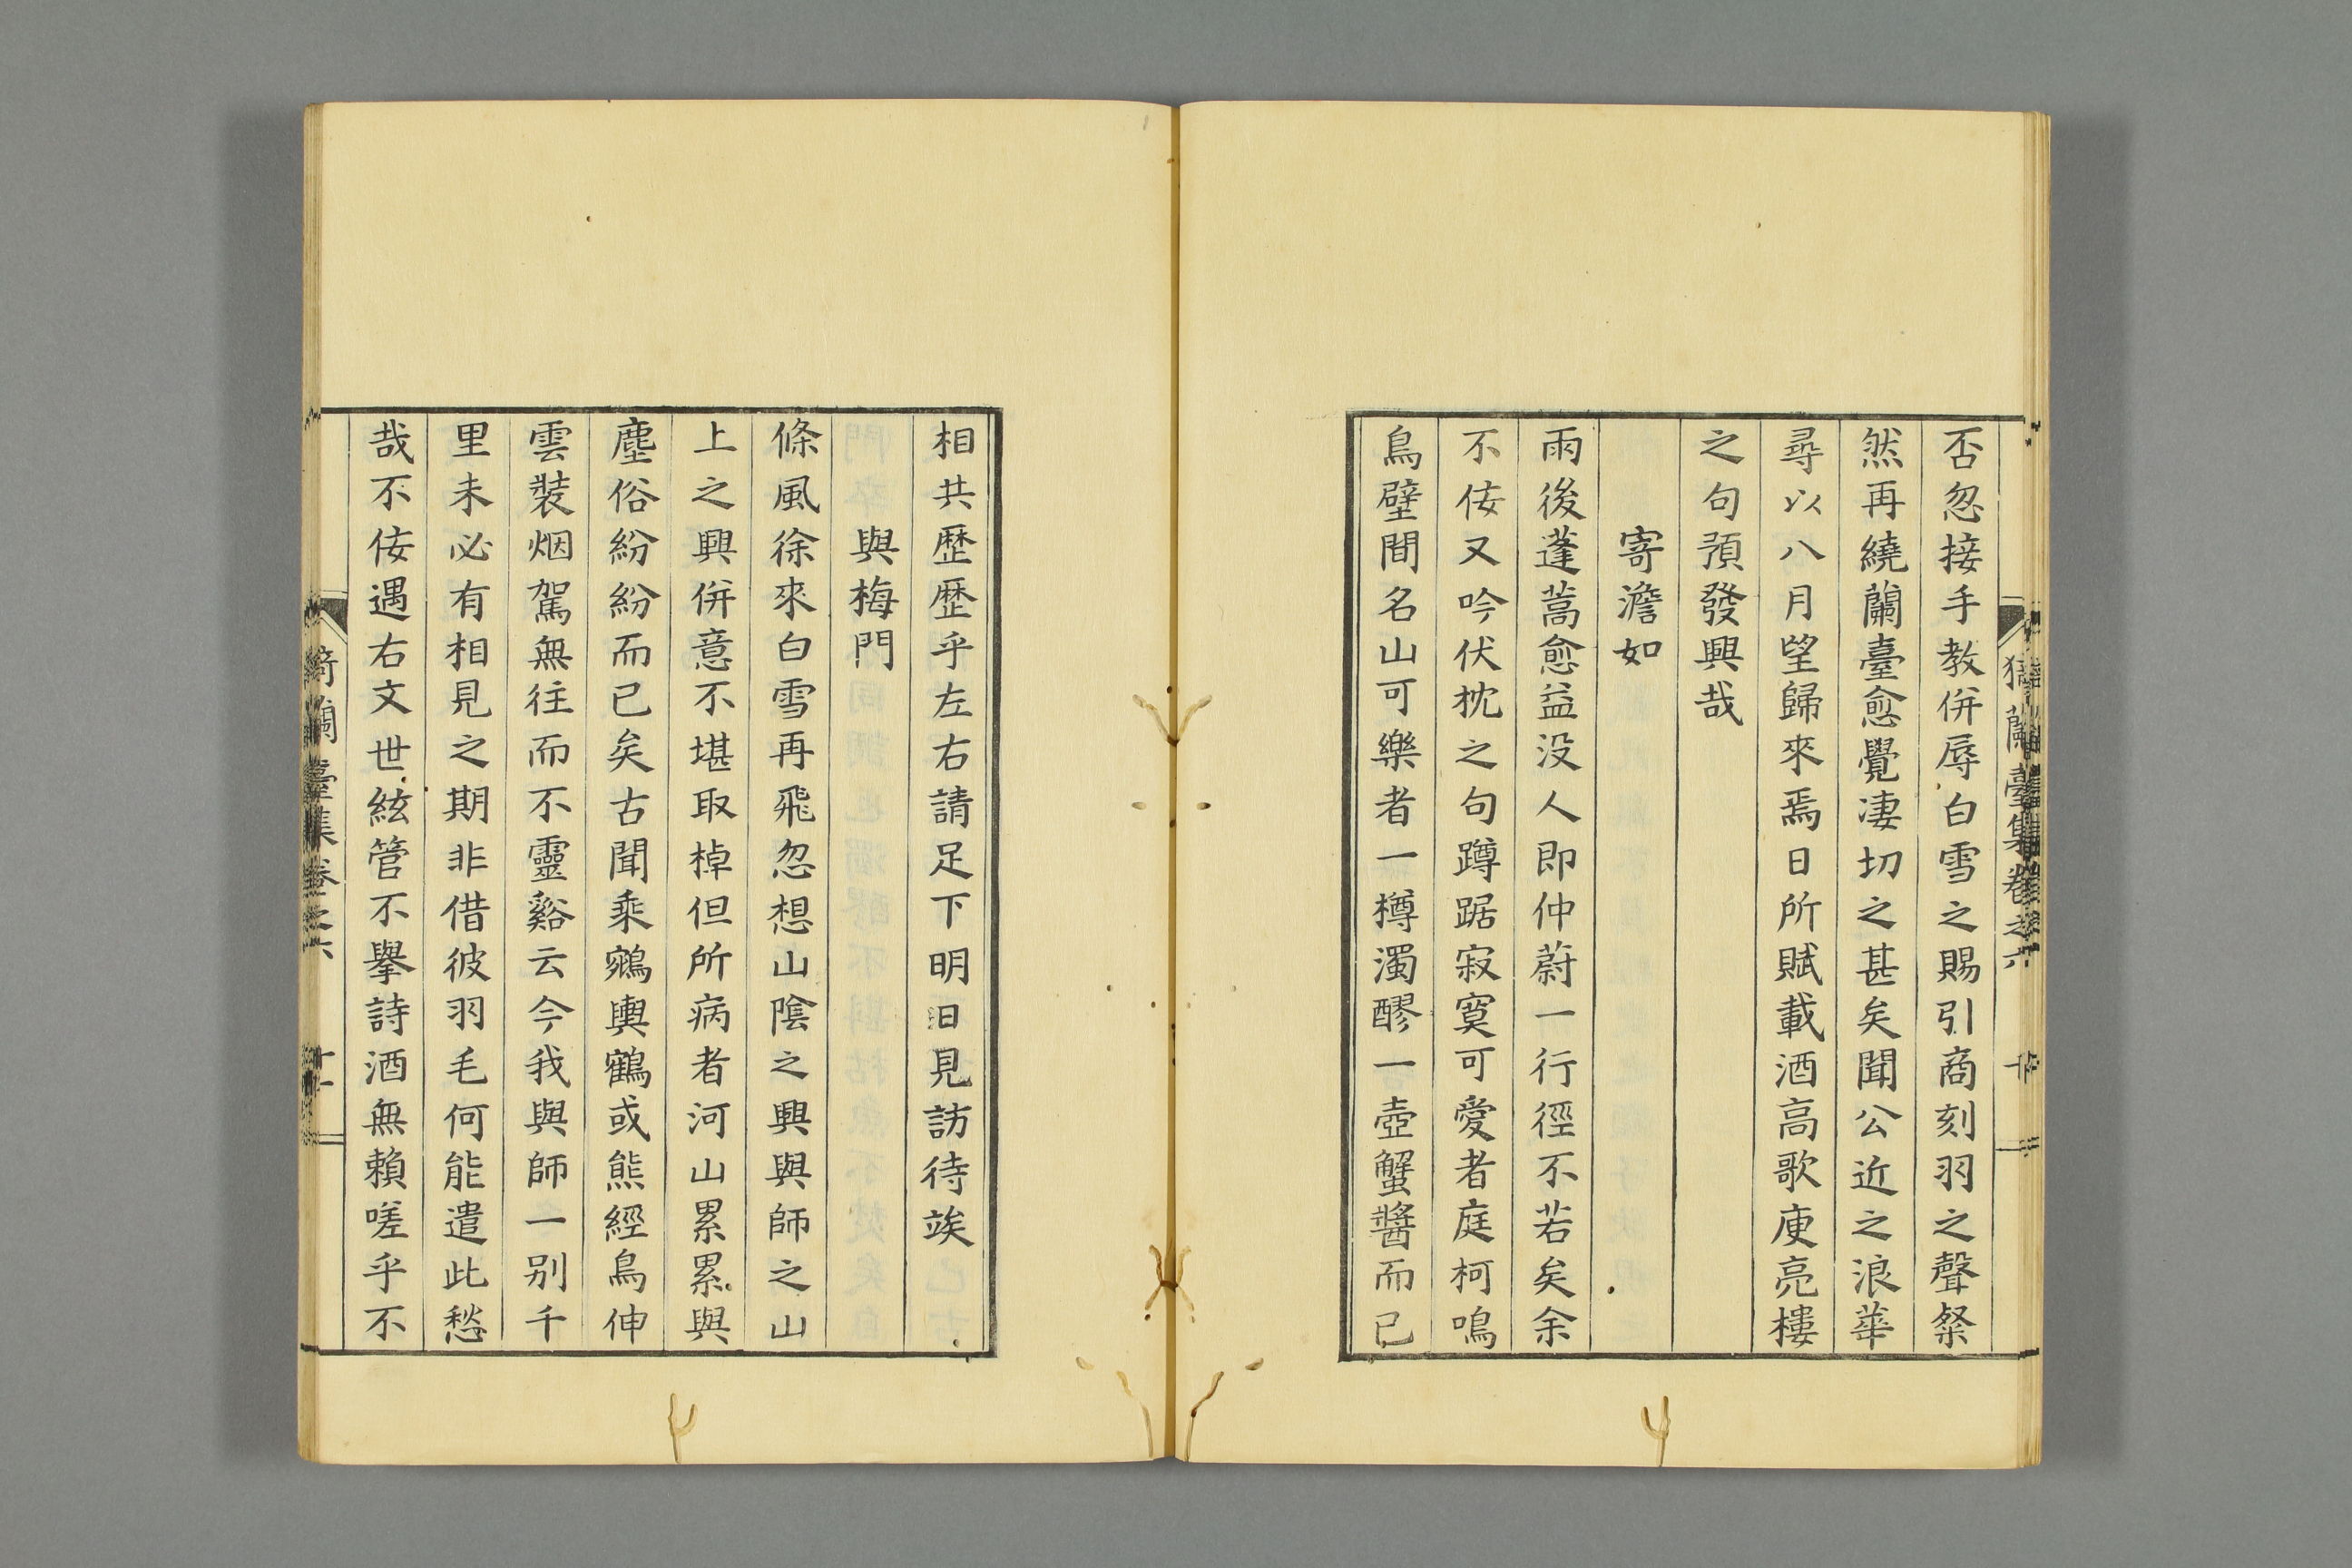 否忽接手教併辱白雪之賜引商刻羽之聲粲
然再繞蘭臺愈覺凄切之甚矣聞公近之浪華
尋以八月望歸來焉日所賦載酒高歌庾亮樓
之句預發興哉
寄澹如
雨後蓬蒿愈益没人即仲蔚一行徑不若矣余
不侫又吟伏枕之句蹲踞寂寞可愛者庭柯鳴
鳥壁間名山可樂者一樽濁醪一壺蟹醬而已
相共歷歷乎左右請足下明日見訪待竢
與梅門
條風徐來白雪再飛忽想山陰之興與師之山
上之興併意不堪取棹但所病者河山累累與
塵俗紛紛而已矣古聞乘鵷輿鶴或熊經鳥伸
雲裝烟駕無往而不靈谿云今我與師一別千
里未必有相見之期非借彼羽毛何能遣此愁
哉不侫遇右文世絃管不擧詩酒無賴嗟乎不
蘭臺集卷之六